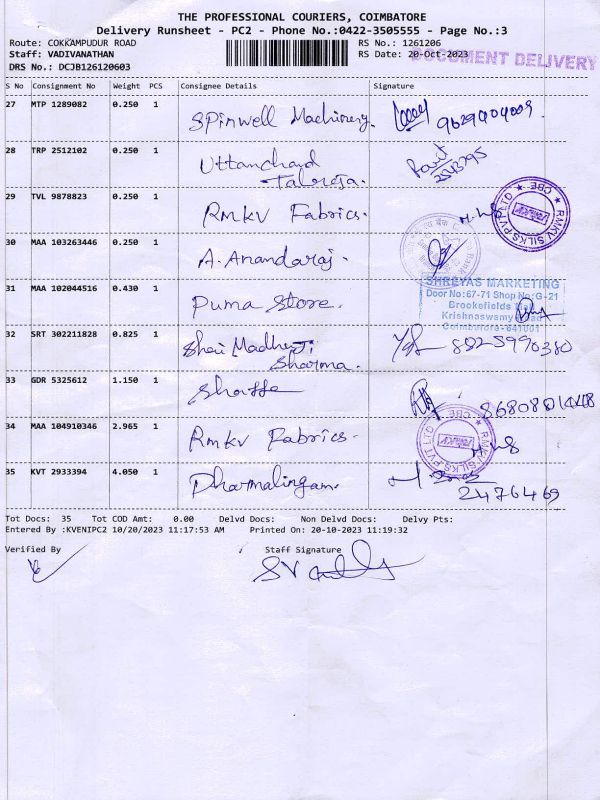 THE PROFESSIONAL COURIERS, COIMBATORE
Delivery Runsheet - PC2 - Phone No.:0422-3505555 - Page No.:3
Route: COKKAMPUDUR ROAD RS No.: 1261206
Staff: VADIVANATHAN RS Date: 20-Oct-2023 DOCUMENT DELIVERY
DRS No.: DCJB126120603
S No Consignment No Weight PCS Consignee Details Signature
27 MTP 1289082 0.250 1 Spinwell Machinery.
28 TRP 2512102 0.250 1 Uttanchand
Talreja.
29 TVL 9878823 0.250 1 RMKV Fabrics.
RMKV SILKS PVT LTD CBE
30 MAA 103263446 0.250 1 A. Anandaraj.
31 MAA 102044516 0.430 1 Puma Store.
SHREYAS MARKETING
Door No:67-71 Shop No:G-21
Brookefields
Krishnaswamy
Coimbatore-641001
32 SRT 302211828 0.825 1 Shai Madheji
Sharma.
33 GDR 5325612 1.150 1
34 MAA 104910346 2.965 1 Rmkv Fabrics.
RMKV SILKS PVT LTD CBE
35 KVT 2933394 4.050 1 Dharmalingam.
2476469
Tot Docs: 35 Tot COD Amt: 0.00 Delvd Docs: Non Delvd Docs: Delvy Pts:
Entered By :KVENIPC2 10/20/2023 11:17:53 AM Printed On: 20-10-2023 11:19:32
Verified By Staff Signature